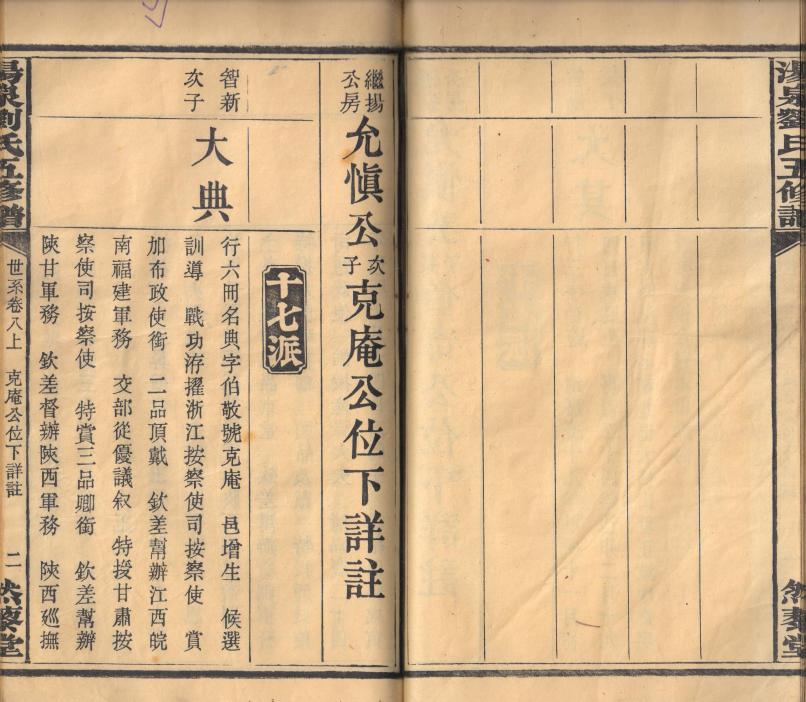 湯泉劉氏五修譜
然藜堂
繼揚公房
允愼公次子克庵公位下詳註
十七派
智新次子
大典
行六冊名典字伯敬號克庵 邑增生 候選
訓導 戰功洊擢浙江按察使司按察使 賞
加布政使銜 二品頂戴 欽差幫辦江西皖
南福建軍務 交部從優議叙 特授甘肅按
察使司按察使 特賞三品卿銜 欽差幫辦
陝甘軍務 欽差督辦陝西軍務 陝西廵撫
湯泉劉氏五修譜
世系卷八上 克庵公位下詳註 二
然藜堂